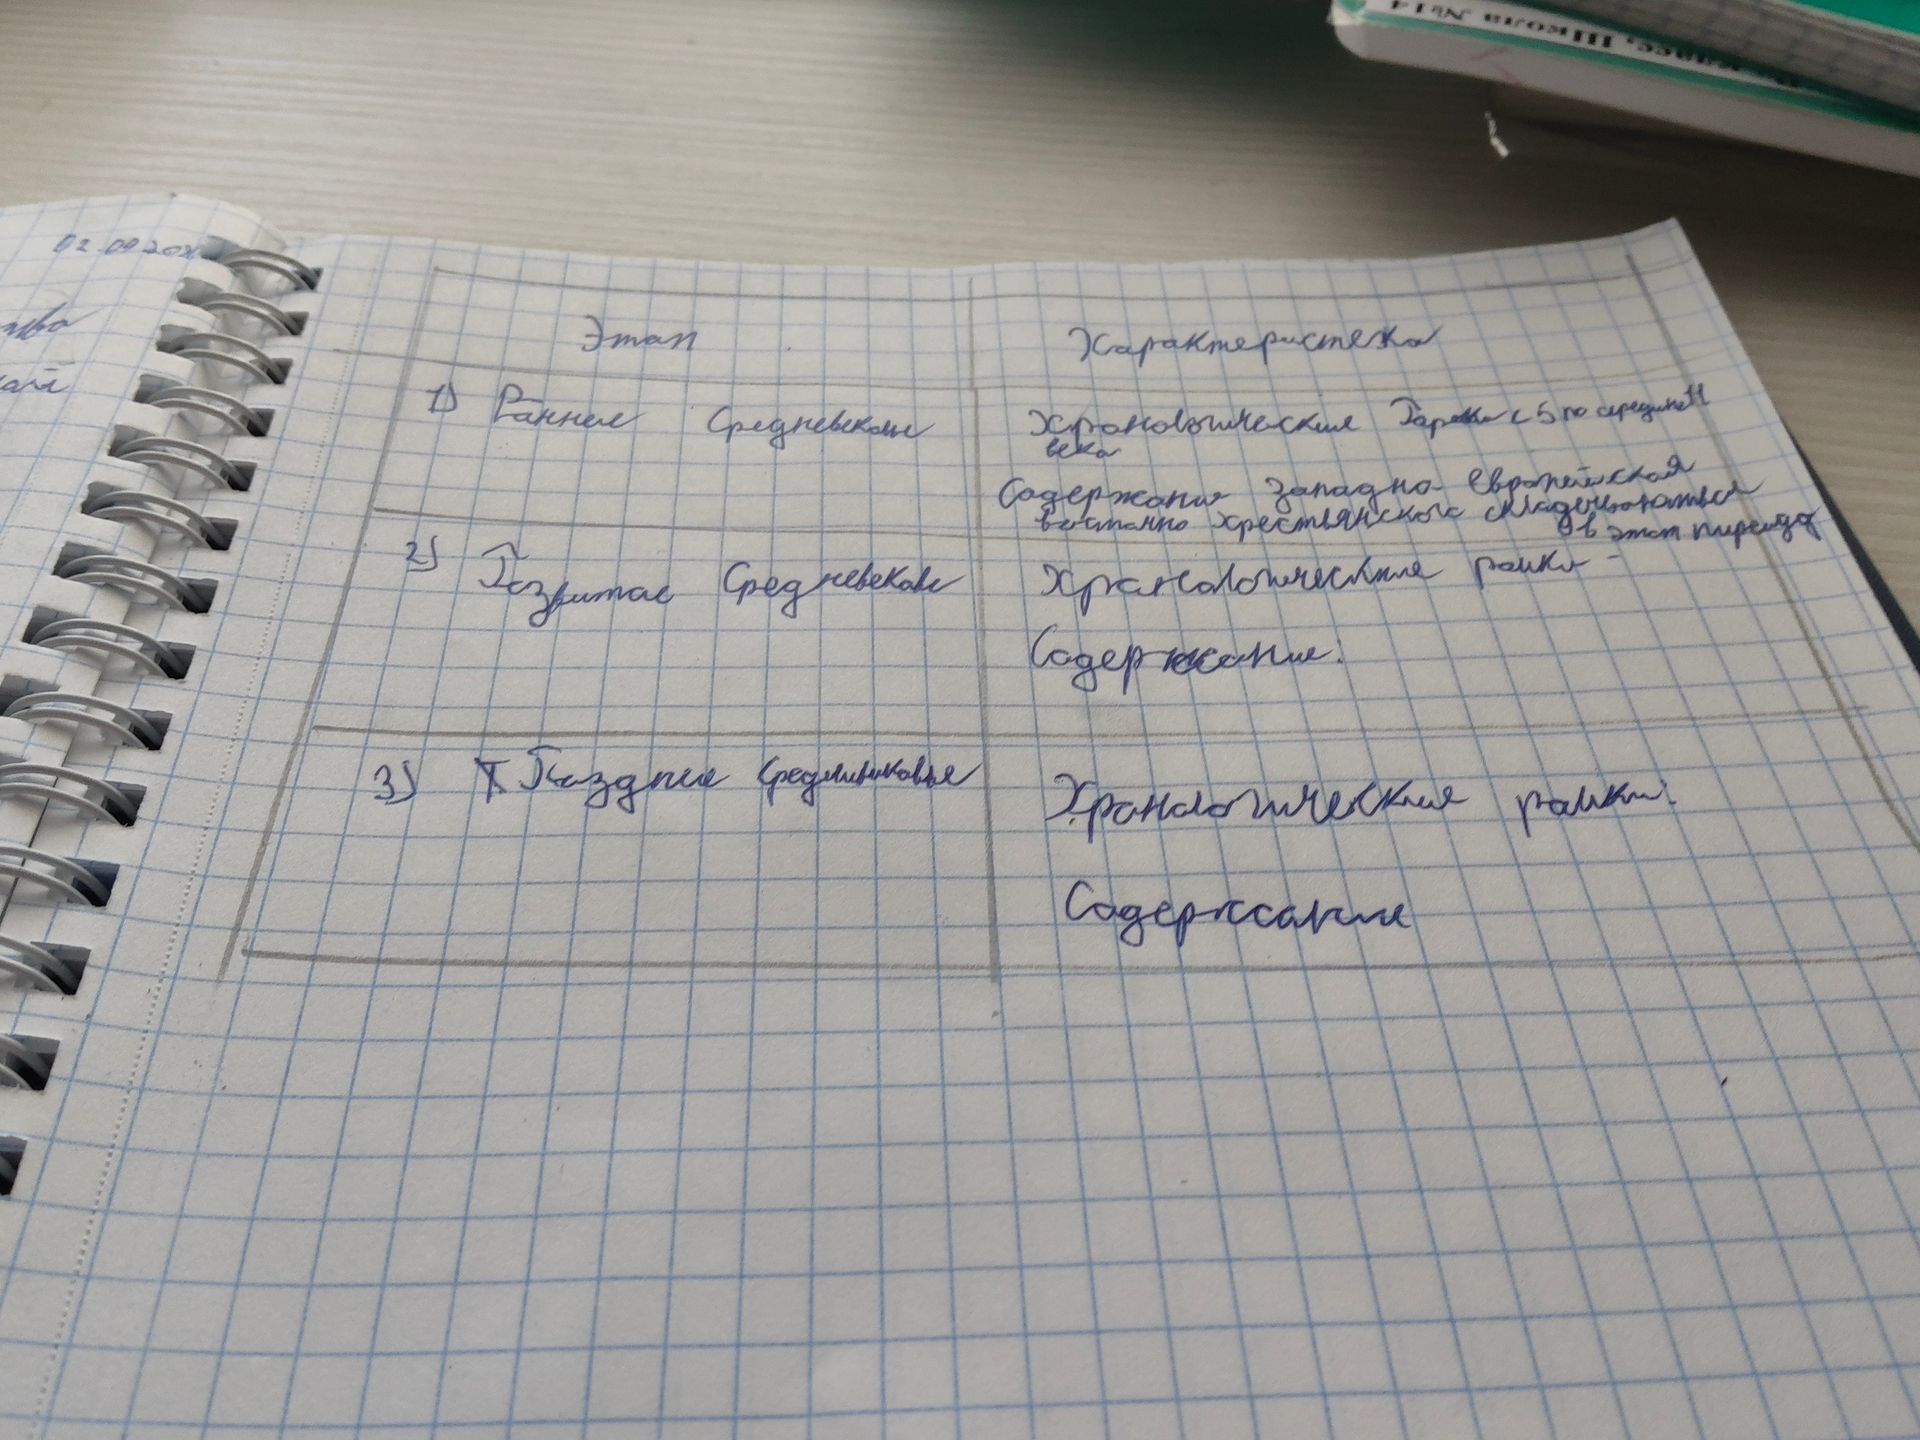 02.09.20
Этап
Характеристека
1) Раннее Средневековье
Хранологические Рамки с 5 по середине 11
века
Содержание Западно Европейская
христьянского складывоаться
в этот пириуд
2) Развитое Средневековье
Хранологические рамки -
Содержание:
3) Позднее Средниковье
Хранологические рамки:
Содержание
класс, Школа №14